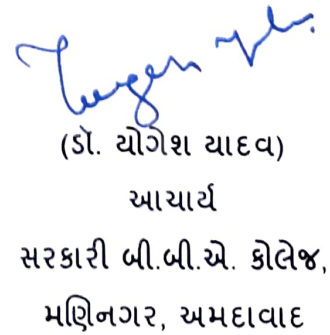 (ડૉ. યોગેશ યાદવ)
આચાર્ય
સરકારી બી.બી.એ. કોલેજ,
મણિનગર, અમદાવાદ